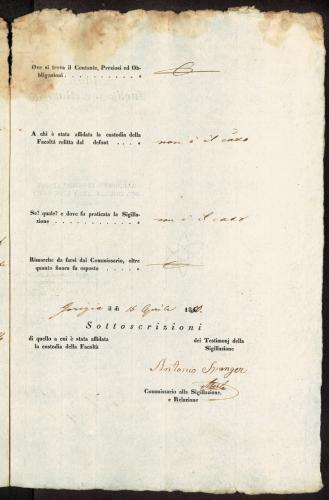 Ove si trova il Contante, Preziosi ed Ob-
bligazioni . . . . . . . . . . . «
A chi è stata affidata la custodia della
Facoltà relitta dal defunt . . . . «
non è il caso
Se? quale? e dove fu praticata la Sigilla-
zione . . . . . . . . . . . . «
non è il caso
Rimarche da farsi dal Commissario, oltre
quanto finora fu esposto . . . . . «
Gorizia il dì 16 Aprile 18
Sottoscrizioni
di quello a cui è stata affidata
la custodia della Facoltà
dei Testimonj della
Sigillazione
Antonio Spanger
Commissario alla Sigillazione,
e Relazione